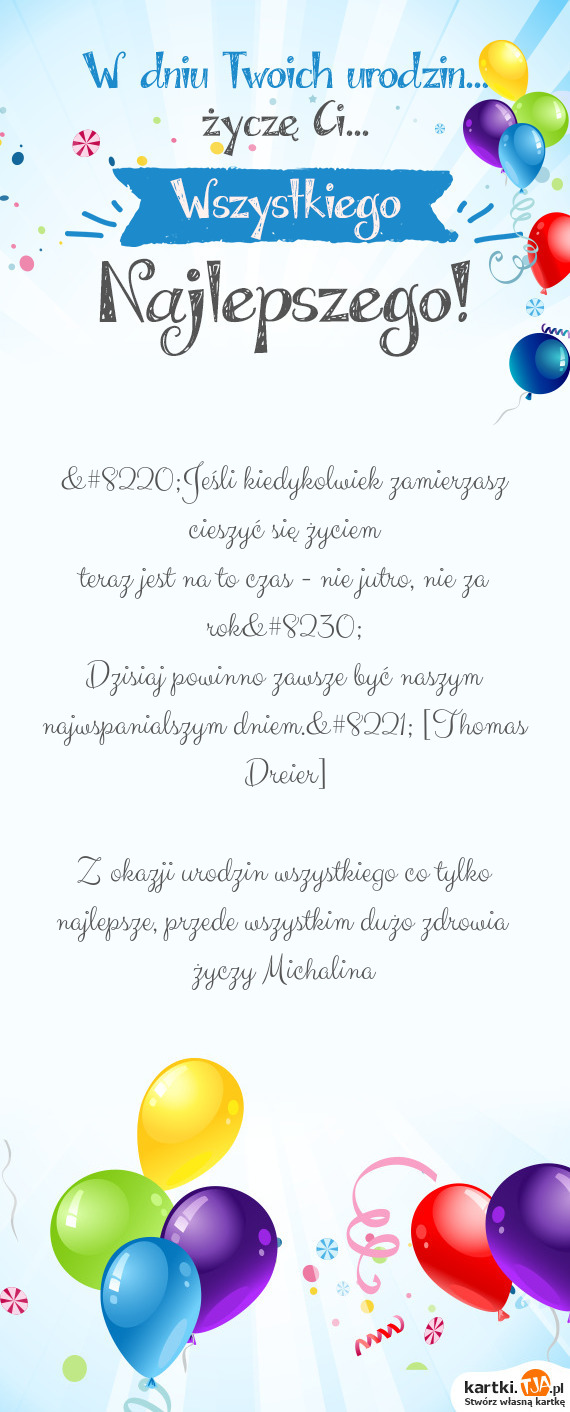 W dniu Twoich urodzin...
życzę Ci...
Wszystkiego
Najlepszego!
&#8220;Jeśli kiedykolwiek zamierzasz
cieszyć się życiem
teraz jest na to czas - nie jutro, nie za
rok&#8230;
Dzisiaj powinno zawsze być naszym
najwspanialszym dniem.&#8221; [Thomas
Dreier]
Z okazji urodzin wszystkiego co tylko
najlepsze, przede wszystkim dużo zdrowia
życzy Michalina
kartki.TJA.pl
Stwórz własną kartkę